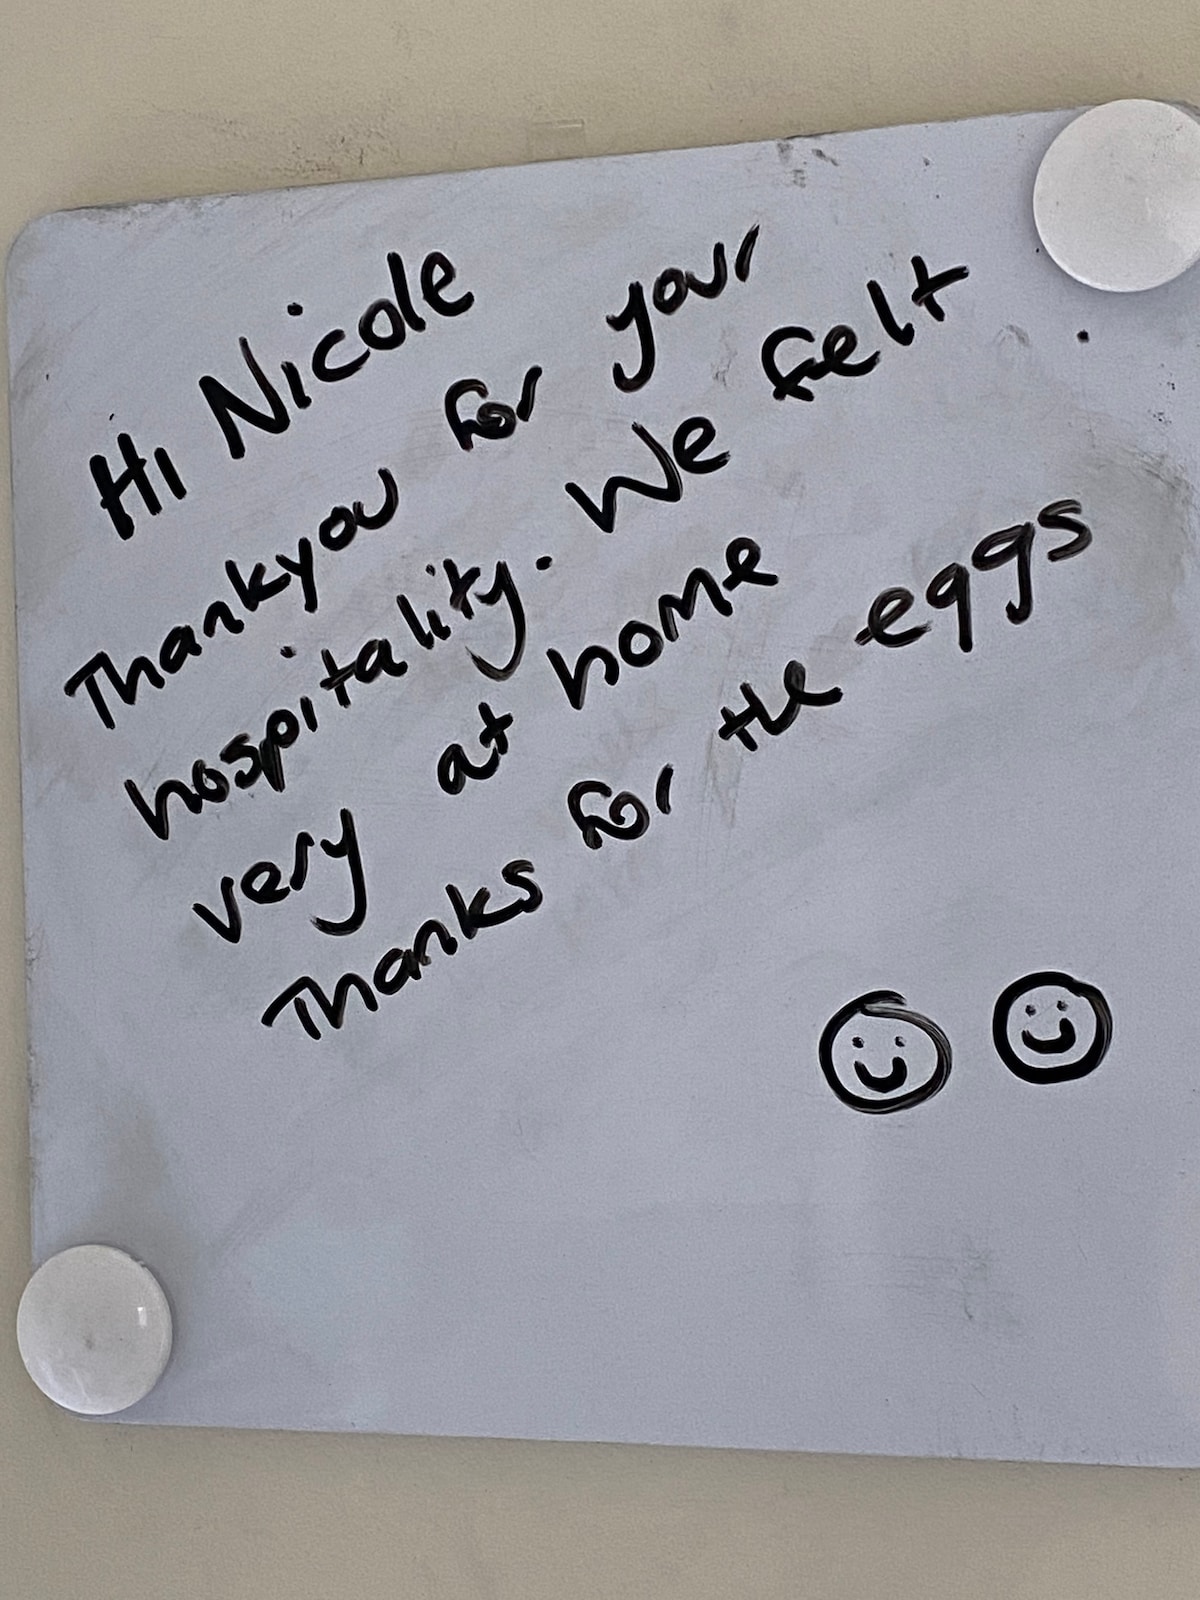 Hi Nicole
Thankyou for your
hospitality. We felt
very at home
Thanks for the eggs